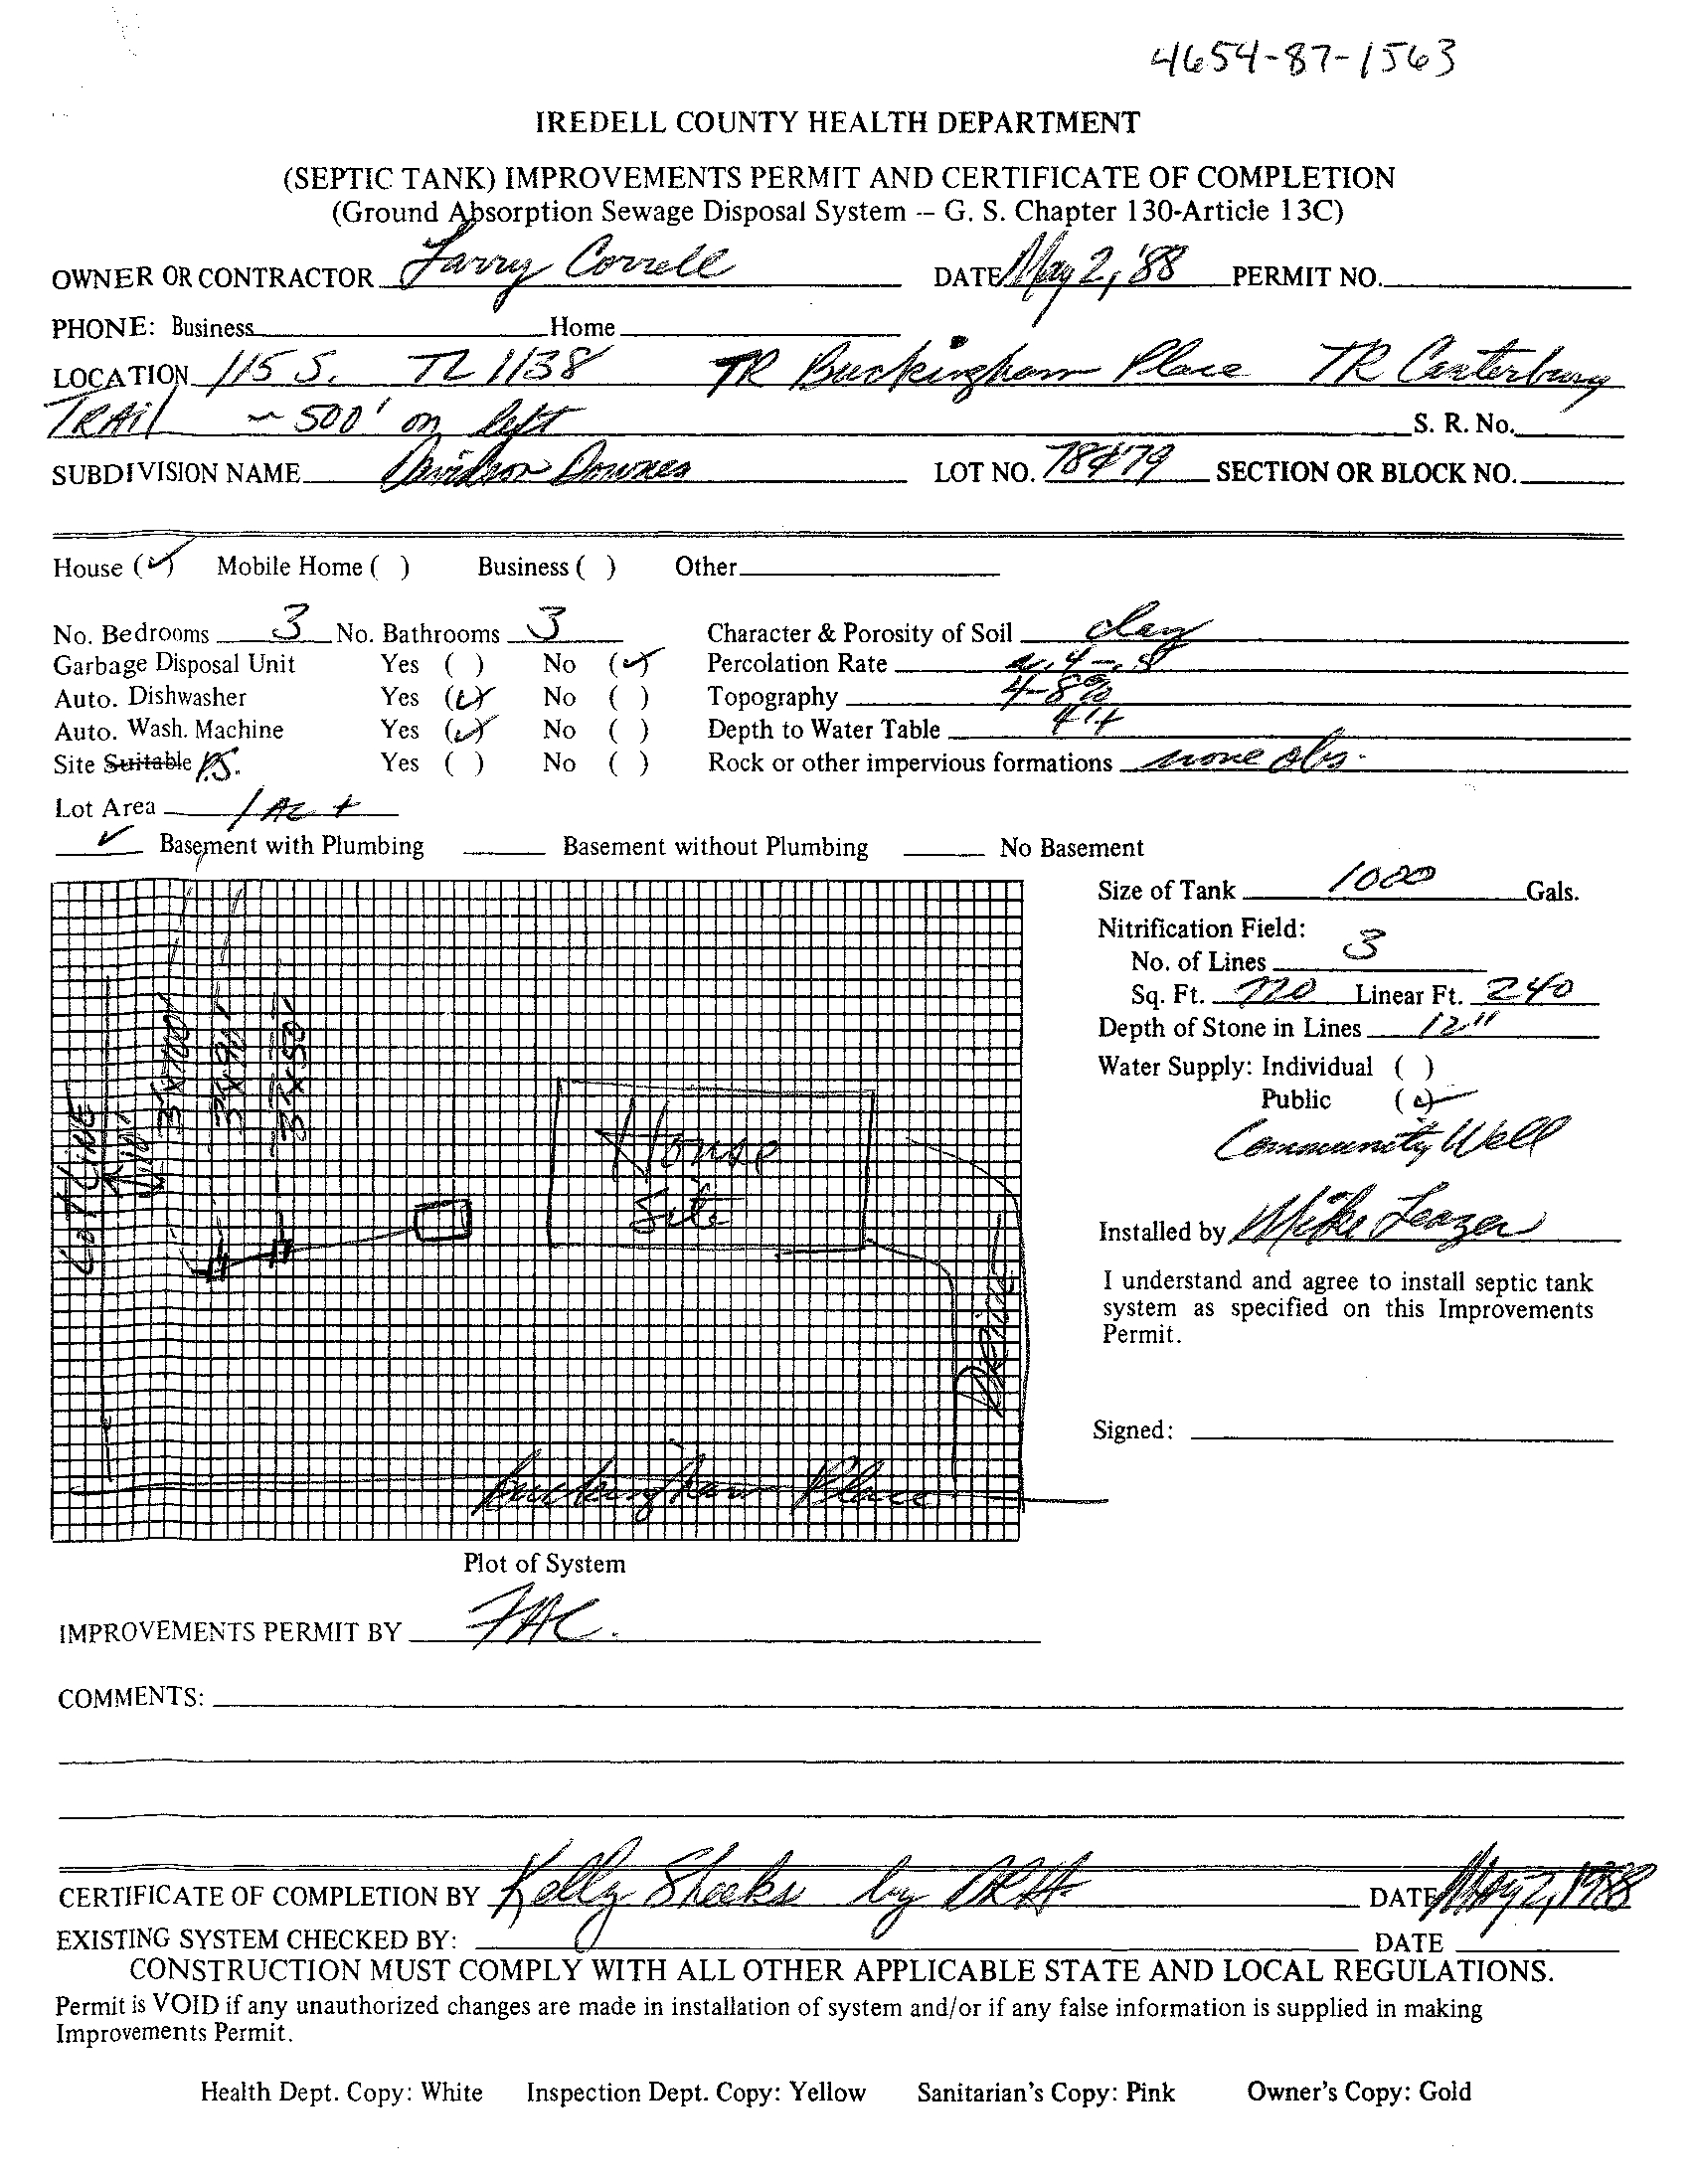 4654-87-1563
IREDELL COUNTY HEALTH DEPARTMENT
(SEPTIC TANK) IMPROVEMENTS PERMIT AND CERTIFICATE OF COMPLETION
(Ground Absorption Sewage Disposal System -- G. S. Chapter 130-Article 13C)
OWNER OR CONTRACTOR Larry Correll DATE May 2, '88 PERMIT NO.
PHONE: Business Home
LOCATION 115 S. TL 1138 TR Buckingham Place TR Canterbury
TRAil ~ 500' on left S. R. No.
SUBDIVISION NAME Davidson Downes LOT NO. 78&79 SECTION OR BLOCK NO.
House (✓) Mobile Home ( ) Business ( ) Other
No. Bedrooms 3 No. Bathrooms 3 Character & Porosity of Soil clay
Garbage Disposal Unit Yes ( ) No (✓) Percolation Rate .4-.8
Auto. Dishwasher Yes (✓) No ( ) Topography 4-8%
Auto. Wash. Machine Yes (✓) No ( ) Depth to Water Table 4'+
Site Suitable P.S. Yes ( ) No ( ) Rock or other impervious formations none obs.
Lot Area 1 AC +
✓ Basement with Plumbing Basement without Plumbing No Basement
Size of Tank 1000 Gals.
Nitrification Field:
No. of Lines 3
Sq. Ft. 720 Linear Ft. 240
Depth of Stone in Lines 12"
Water Supply: Individual ( )
Public (✓)
Community Well
Installed by Mike Leazer
I understand and agree to install septic tank
system as specified on this Improvements
Permit.
Signed:
LOT LINE
10'
3'x100'
3'x90'
3'x50'
House
Site
DRIVE
Buckingham Place
Plot of System
IMPROVEMENTS PERMIT BY
COMMENTS:
CERTIFICATE OF COMPLETION BY Kelly Sheeks by DRH DATE May 2, 1988
EXISTING SYSTEM CHECKED BY: DATE
CONSTRUCTION MUST COMPLY WITH ALL OTHER APPLICABLE STATE AND LOCAL REGULATIONS.
Permit is VOID if any unauthorized changes are made in installation of system and/or if any false information is supplied in making
Improvements Permit.
Health Dept. Copy: White Inspection Dept. Copy: Yellow Sanitarian's Copy: Pink Owner's Copy: Gold